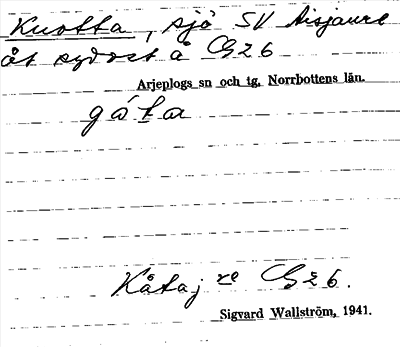 Kuotta, sjö SV Aisjaure
åt sydost å G26
Arjeplogs sn och tg, Norrbottens län.
gáta
Kåtaj re G26.
Sigvard Wallström, 1941.